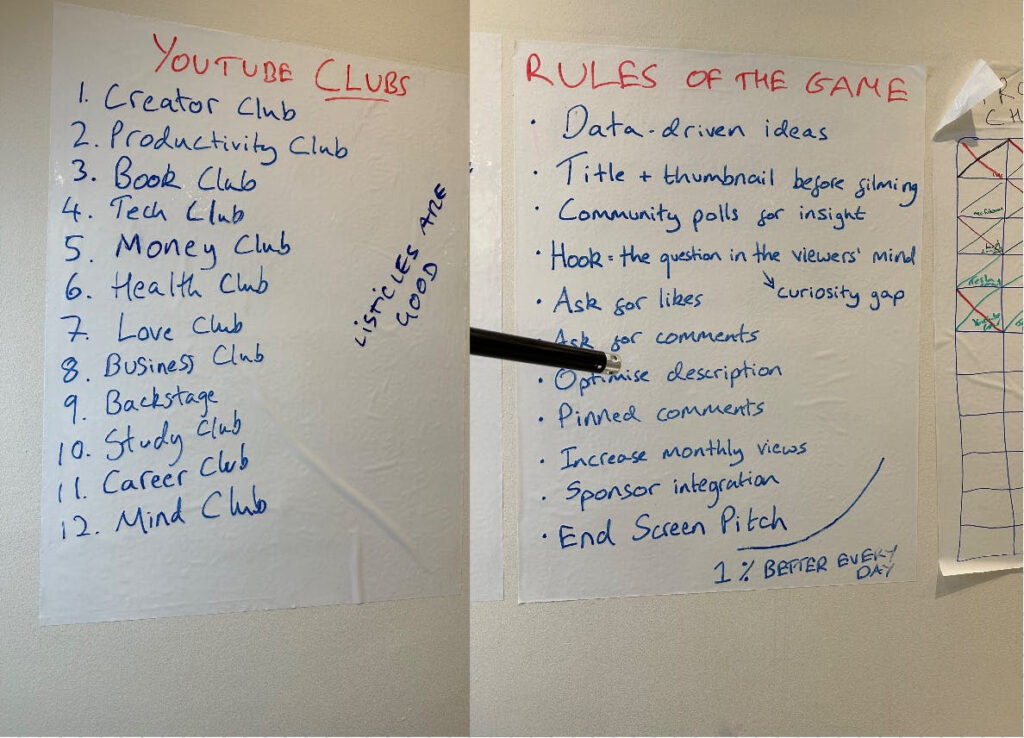 YOUTUBE CLUBS
1. Creator Club
2. Productivity Club
3. Book Club
4. Tech Club
5. Money Club
6. Health Club
7. Love Club
8. Business Club
9. Backstage
10. Study Club
11. Career Club
12. Mind Club
LISTICLES ARE
GOOD
RULES OF THE GAME
· Data-driven ideas
· Title + thumbnail before filming
· Community polls for insight
· Hook = the question in the viewers' mind
↘ curiosity gap
· Ask for likes
· Ask for comments
· Optimise description
· Pinned comments
· Increase monthly views
· Sponsor integration
· End Screen Pitch
1% BETTER EVERY
DAY